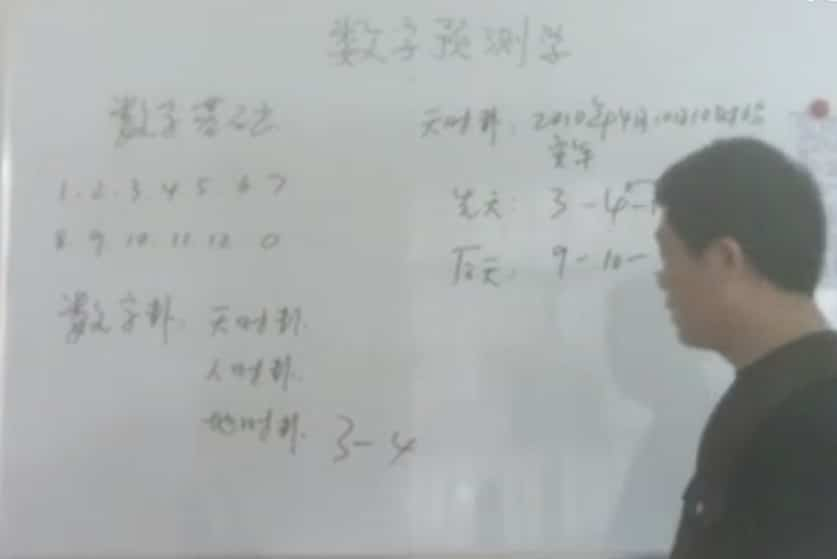 数字预测学
数字营运
1.2.3.4 5.6 7
8.9.10.11.12.0
数字卦.天时卦.
人时卦.
地时卦.3-4
天时卦:2010年04月10日10时
先天:3-4-
后天:9-10-